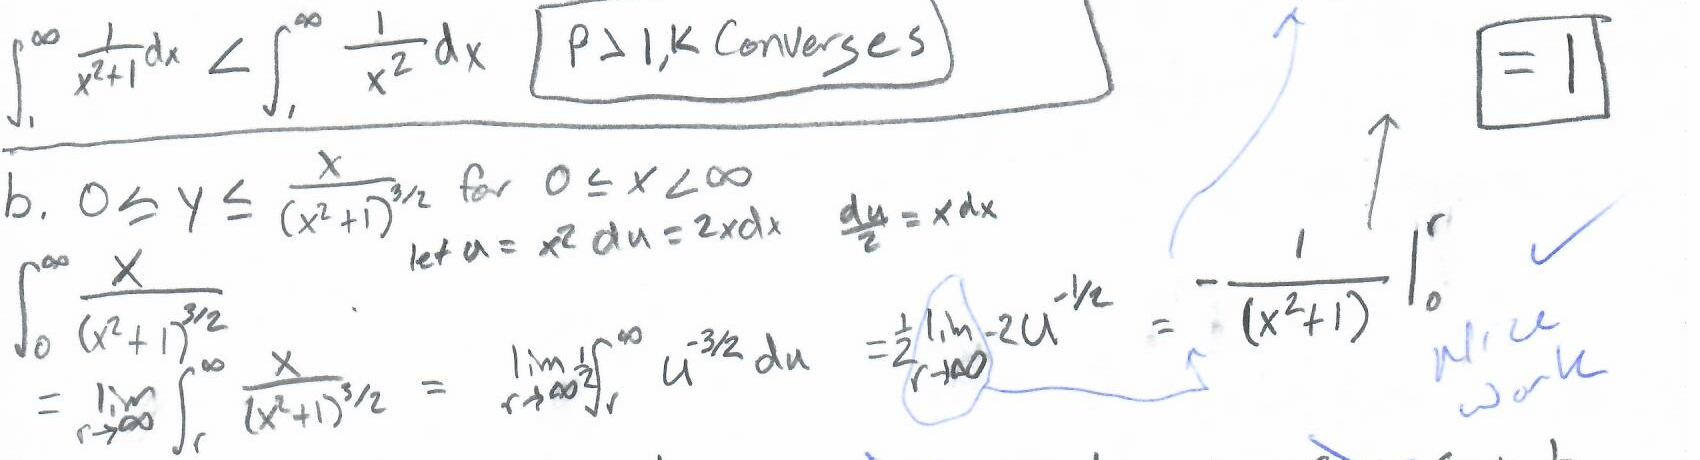 ∫₁^∞ 1/(x²+1) dx < ∫₁^∞ 1/x² dx  P>1, K Converges  = 1
b. 0 ≤ y ≤ x/(x²+1)^(3/2) for 0 ≤ x < ∞
let u = x² du = 2xdx  du/2 = xdx
∫₀^∞ x/(x²+1)^(3/2)
= lim r→∞ ∫_r^∞ x/(x²+1)^(3/2) = lim r→∞ 1/2 ∫_r^∞ u^(-3/2) du = 1/2 lim r→∞ -2u^(-1/2) = -1/(x²+1) |₀^r
✓
Nice
work